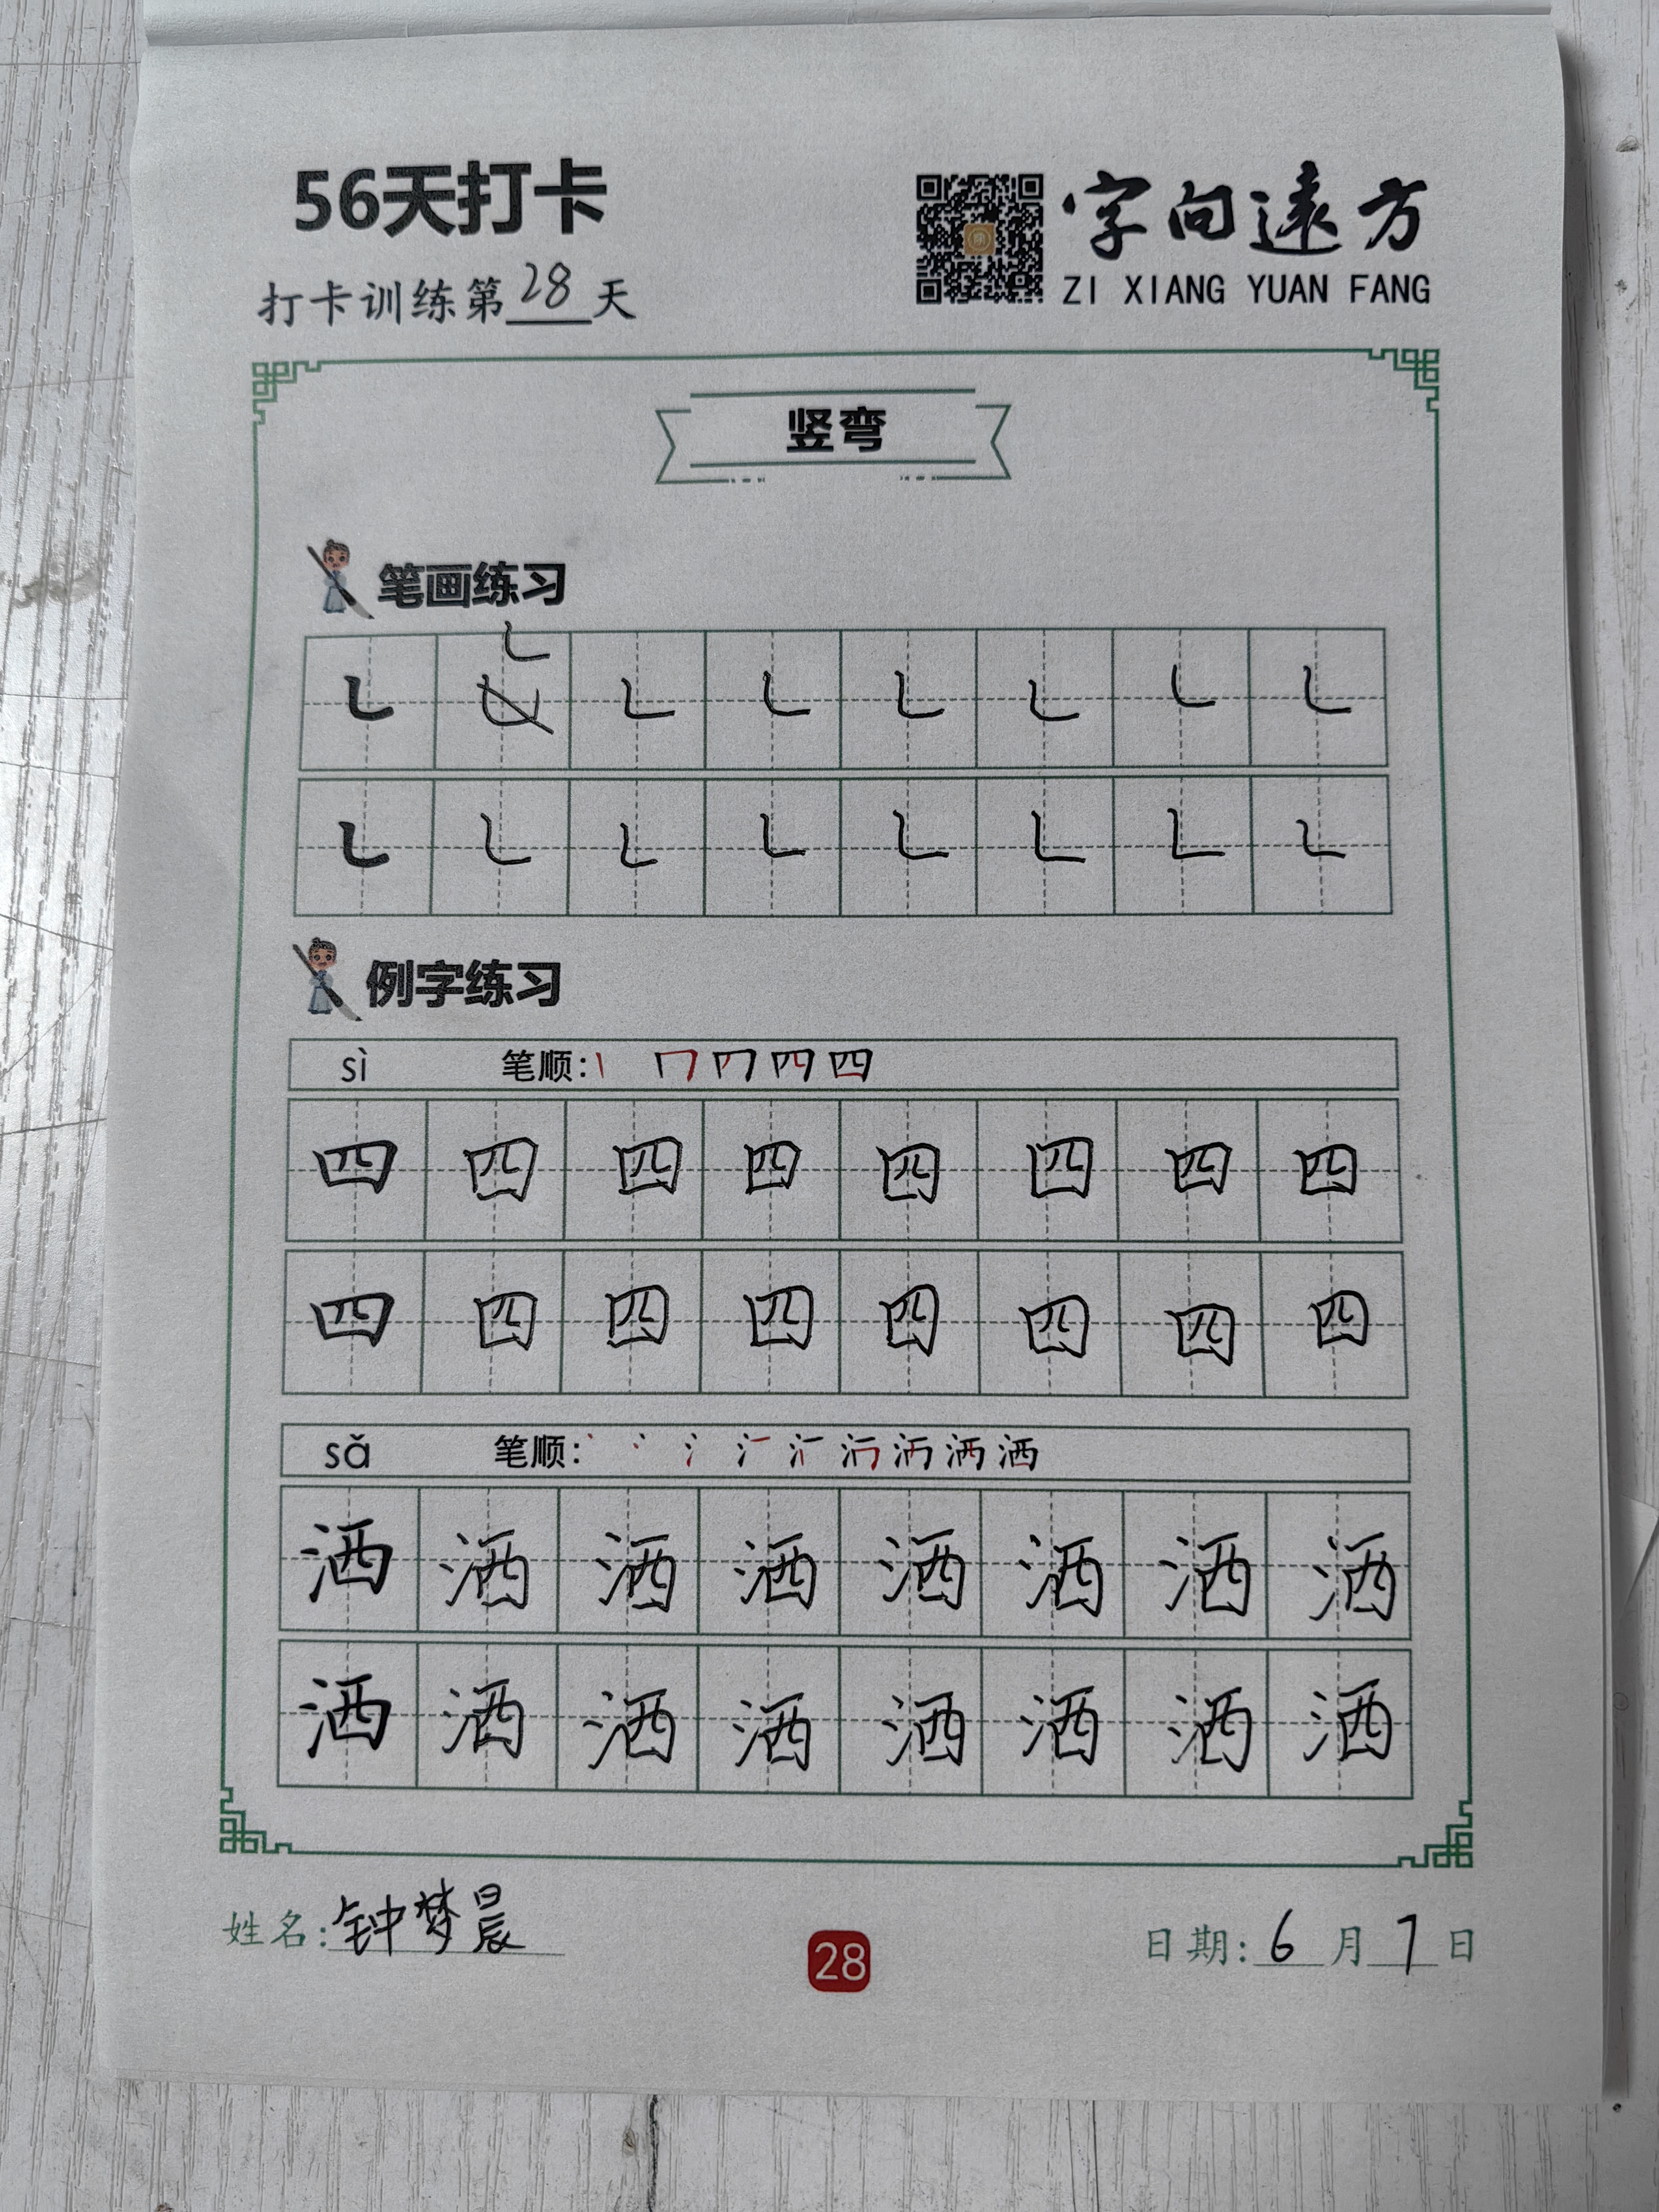 56天打卡
字向遠方
ZI XIANG YUAN FANG
打卡训练第28天
竖弯
笔画练习
例字练习
sì 笔顺:
四 四 四 四 四 四 四 四
四 四 四 四 四 四 四 四
sǎ 笔顺:
洒 洒 洒 洒 洒 洒 洒 洒
洒 洒 洒 洒 洒 洒 洒 洒
姓名:钟梦晨
28
日期:6月7日